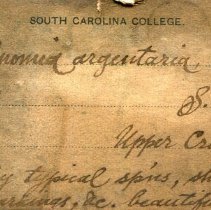 SOUTH CAROLINA COLLEGE.
nomia argentaria,
S.
Upper Cr
y typical spi's, sh
arkings, &c. beautif